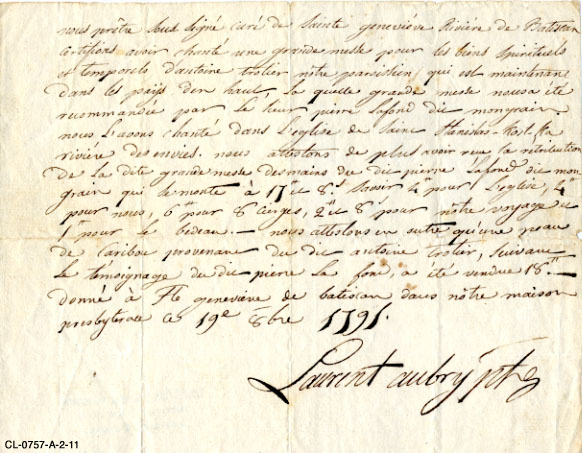 nous prêtre sous signé curé de Sainte geneviéve Riviére de Batiscan
certifions avoir chanté une grande messe pour les biens spirituels
et temporels d'antoine trotier nôtre paroissien, qui est maintenant
dans les païs d'en haut, la quelle grande messe nous a été
recommandée par le sieur pierre lafond dit mongrain.
nous l'avons chanté dans l'eglise de Saint Stanislas-Kostka
riviére des envies. nous attestons de plus avoir reçu la rétribution
de la dite grande messe des mains du dit pierre Lafond dit mon
grain qui se monte à 17# et 8s. savoir 4 pour l'eglise, 4#
pour nous, 6# pour 8 cierges, 2# et 8s pour nôtre voyage et
1# pour le bedeau. — nous attestons en outre qu'une peau
de caribou provenant du dit antoine trotier, suivant
le témoignage du dit pierre la fond, a été vendue 18# —
donné à Ste geneviéve de batiscan dans nôtre maison
presbyterale ce 19e 8bre 1791.
Laurent aubry ptre
CL-0757-A-2-11